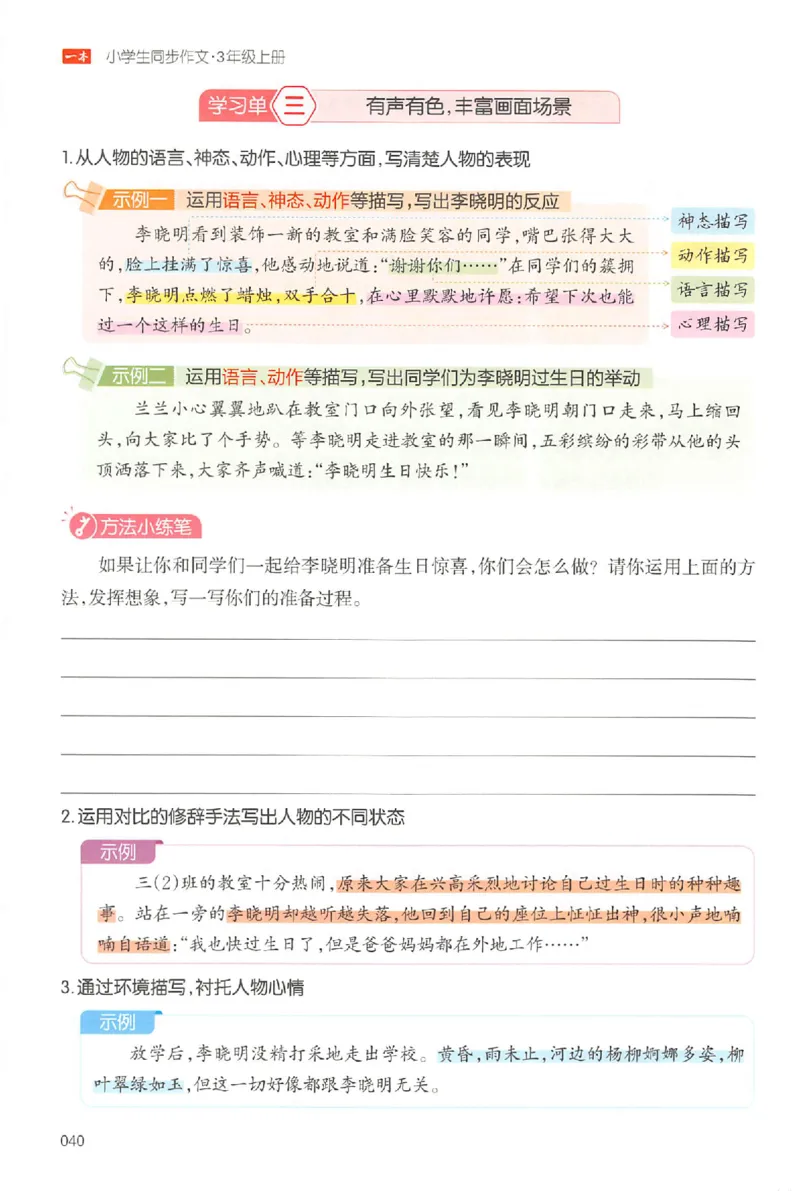 一本 小学生同步作文·3年级上册
学习单 三 有声有色,丰富画面场景
1.从人物的语言、神态、动作、心理等方面,写清楚人物的表现
示例一 运用语言、神态、动作等描写,写出李晓明的反应
李晓明看到装饰一新的教室和满脸笑容的同学,嘴巴张得大大
的,脸上挂满了惊喜,他感动地说道:“谢谢你们……”在同学们的簇拥
下,李晓明点燃了蜡烛,双手合十,在心里默默地许愿:希望下次也能
过一个这样的生日。
神态描写
动作描写
语言描写
心理描写
示例二 运用语言、动作等描写,写出同学们为李晓明过生日的举动
兰兰小心翼翼地趴在教室门口向外张望,看见李晓明朝门口走来,马上缩回
头,向大家比了个手势。等李晓明走进教室的那一瞬间,五彩缤纷的彩带从他的头
顶洒落下来,大家齐声喊道:“李晓明生日快乐!”
方法小练笔
如果让你和同学们一起给李晓明准备生日惊喜,你们会怎么做?请你运用上面的方
法,发挥想象,写一写你们的准备过程。
2.运用对比的修辞手法写出人物的不同状态
示例
三(2)班的教室十分热闹,原来大家在兴高采烈地讨论自己过生日时的种种趣
事。站在一旁的李晓明却越听越失落,他回到自己的座位上怔怔出神,很小声地喃
喃自语道:“我也快过生日了,但是爸爸妈妈都在外地工作……”
3.通过环境描写,衬托人物心情
示例
放学后,李晓明没精打采地走出学校。黄昏,雨未止,河边的杨柳婀娜多姿,柳
叶翠绿如玉,但这一切好像都跟李晓明无关。
040